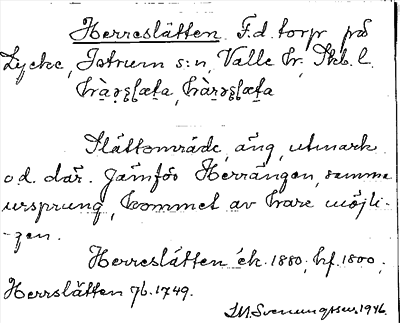 Herreslätten. F.d. torp på
Lycke, Istrum s:n, Valle hr, Skb. l.
Slättområde, äng, utmark
o.d. där. Jämför Herrängen, samma
ursprung, kommet av hare möjli-
-gen.
Herreslätten ek. 1880, hf. 1800,
Herrslätten jb. 1749.
1946.